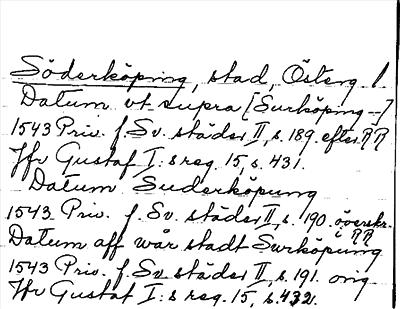 Söderköping, stad, Österg. l
Datum vt supra [Surköping -]
1543 Priv. f. Sv. städer II, s. 189. efter RR
Jfr Gustaf I:s reg. 15, s. 431.
Datum Suderköpung
1543 Priv. f. Sv. städer II, s. 190. överskr. i RR
Datum aff wår stadt Swrköpung
1543 Priv. f. Sv. städer II, s. 191. orig
Jfr Gustaf I:s reg. 15, s. 432.